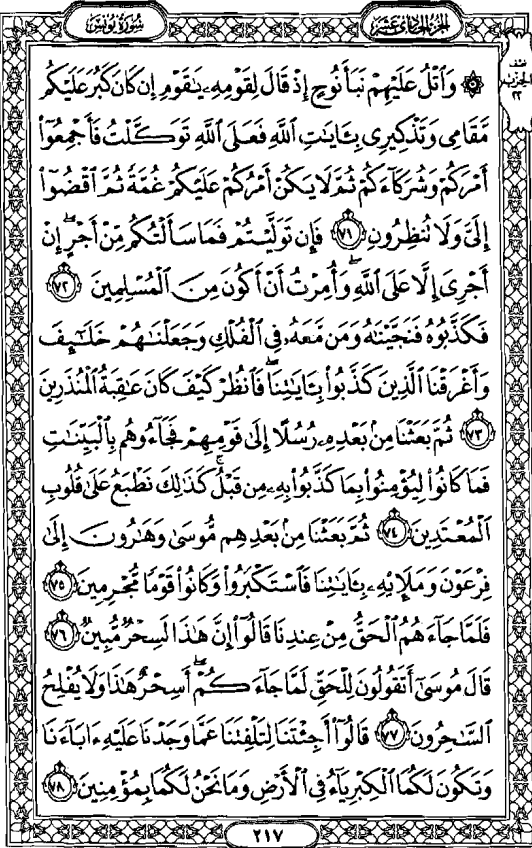 سُورَةُ يُونُسَ
الجُزْءُ الحَادِي عَشَرَ
۞ وَٱتْلُ عَلَيْهِمْ نَبَأَ نُوحٍ إِذْ قَالَ لِقَوْمِهِۦ يَٰقَوْمِ إِن كَانَ كَبُرَ عَلَيْكُم
مَّقَامِى وَتَذْكِيرِى بِـَٔايَٰتِ ٱللَّهِ فَعَلَى ٱللَّهِ تَوَكَّلْتُ فَأَجْمِعُوٓا۟
أَمْرَكُمْ وَشُرَكَآءَكُمْ ثُمَّ لَا يَكُنْ أَمْرُكُمْ عَلَيْكُمْ غُمَّةً ثُمَّ ٱقْضُوٓا۟
إِلَىَّ وَلَا تُنظِرُونِ ٧١ فَإِن تَوَلَّيْتُمْ فَمَا سَأَلْتُكُم مِّنْ أَجْرٍ ۖ إِنْ
أَجْرِىَ إِلَّا عَلَى ٱللَّهِ ۖ وَأُمِرْتُ أَنْ أَكُونَ مِنَ ٱلْمُسْلِمِينَ ٧٢
فَكَذَّبُوهُ فَنَجَّيْنَٰهُ وَمَن مَّعَهُۥ فِى ٱلْفُلْكِ وَجَعَلْنَٰهُمْ خَلَٰٓئِفَ
وَأَغْرَقْنَا ٱلَّذِينَ كَذَّبُوا۟ بِـَٔايَٰتِنَا ۖ فَٱنظُرْ كَيْفَ كَانَ عَٰقِبَةُ ٱلْمُنذَرِينَ
٧٣ ثُمَّ بَعَثْنَا مِنۢ بَعْدِهِۦ رُسُلًا إِلَىٰ قَوْمِهِمْ فَجَآءُوهُم بِٱلْبَيِّنَٰتِ
فَمَا كَانُوا۟ لِيُؤْمِنُوا۟ بِمَا كَذَّبُوا۟ بِهِۦ مِن قَبْلُ ۚ كَذَٰلِكَ نَطْبَعُ عَلَىٰ قُلُوبِ
ٱلْمُعْتَدِينَ ٧٤ ثُمَّ بَعَثْنَا مِنۢ بَعْدِهِم مُّوسَىٰ وَهَٰرُونَ إِلَىٰ
فِرْعَوْنَ وَمَلَإِي۟هِۦ بِـَٔايَٰتِنَا فَٱسْتَكْبَرُوا۟ وَكَانُوا۟ قَوْمًا مُّجْرِمِينَ ٧٥
فَلَمَّا جَآءَهُمُ ٱلْحَقُّ مِنْ عِندِنَا قَالُوٓا۟ إِنَّ هَٰذَا لَسِحْرٌ مُّبِينٌ ٧٦
قَالَ مُوسَىٰٓ أَتَقُولُونَ لِلْحَقِّ لَمَّا جَآءَكُمْ ۖ أَسِحْرٌ هَٰذَا وَلَا يُفْلِحُ
ٱلسَّٰحِرُونَ ٧٧ قَالُوٓا۟ أَجِئْتَنَا لِتَلْفِتَنَا عَمَّا وَجَدْنَا عَلَيْهِ ءَابَآءَنَا
وَتَكُونَ لَكُمَا ٱلْكِبْرِيَآءُ فِى ٱلْأَرْضِ وَمَا نَحْنُ لَكُمَا بِمُؤْمِنِينَ ٧٨
٢١٧